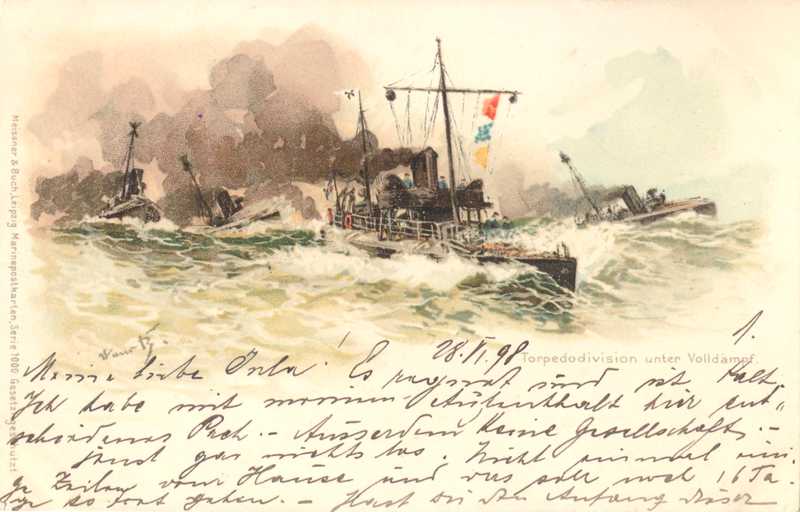 Meissner & Buch, Leipzig. Marinepostkarten, Serie 1000. Gesetzl. geschützt
Torpedodivision unter Volldampf.
28.VI.98
1.
Meine liebe ! Es regnet und ist kalt.
Ich habe mit meinem Aufenthalt hier ent„
schiedenes Pech. – Ausserdem keine Gesellschaft. –
sonst gar nichts los. Nicht einmal eini„
ge Zeilen vom Hause und das soll noch 16 Ta„
ge so fort gehen. – Hast Du den Anfang dieser